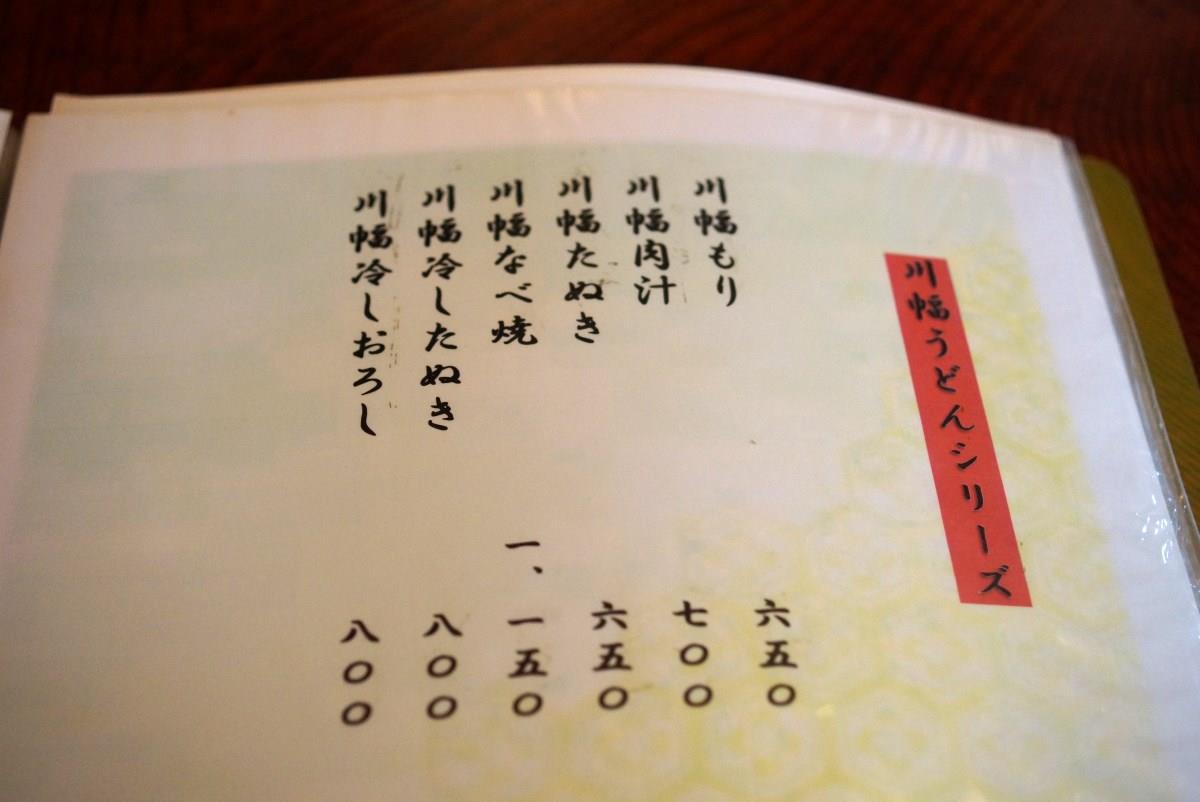 川幅うどんシリーズ
川幅もり 六五〇
川幅肉汁 七〇〇
川幅たぬき 六五〇
川幅なべ焼 一、一五〇
川幅冷したぬき 八〇〇
川幅冷しおろし 八〇〇